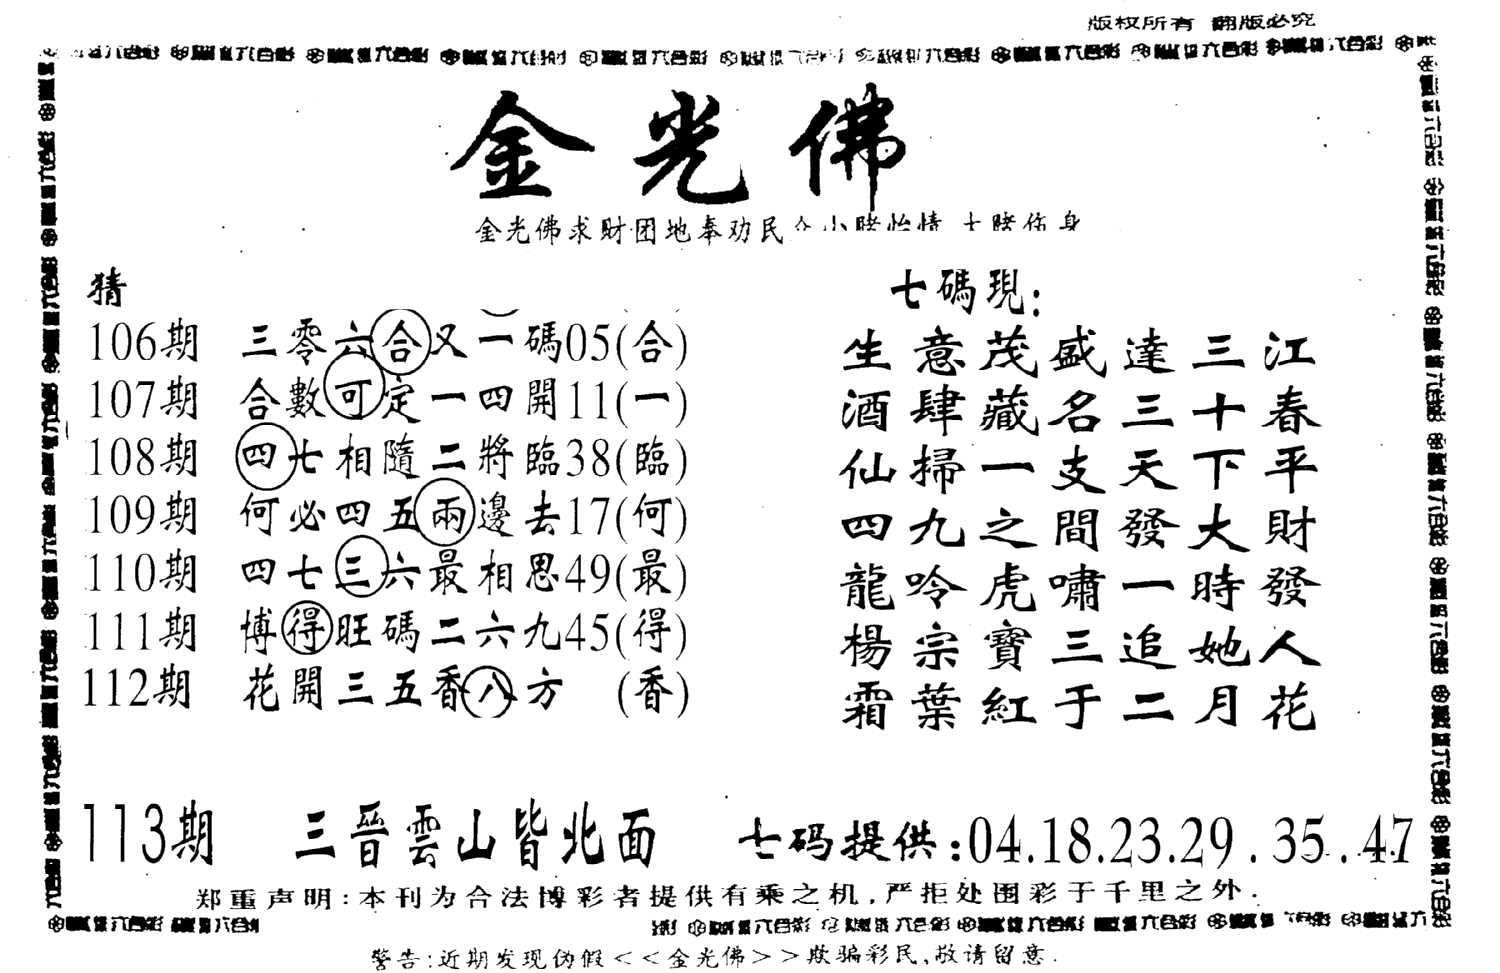 版权所有 翻版必究
金光佛
金光佛求财团地奉劝民众小赌怡情 大赌伤身
猜
106期 三零六合又一碼05(合)
107期 合數可定一四開11(一)
108期 四七相隨二將臨38(臨)
109期 何必四五兩邊去17(何)
110期 四七三六最相思49(最)
111期 博得旺碼二六九45(得)
112期 花開三五香八方 (香)
七碼現:
生意茂盛達三江
酒肆藏名三十春
仙掃一支天下平
四九之間發大財
龍吟虎嘯一時發
楊宗寶三追她人
霜葉紅于二月花
113期 三晉雲山皆北面 七码提供:04.18.23.29.35.47
郑重声明:本刊为合法博彩者提供有乘之机,严拒处围彩于千里之外.
警告:近期发现伪假<<金光佛>>欺骗彩民,敬请留意.